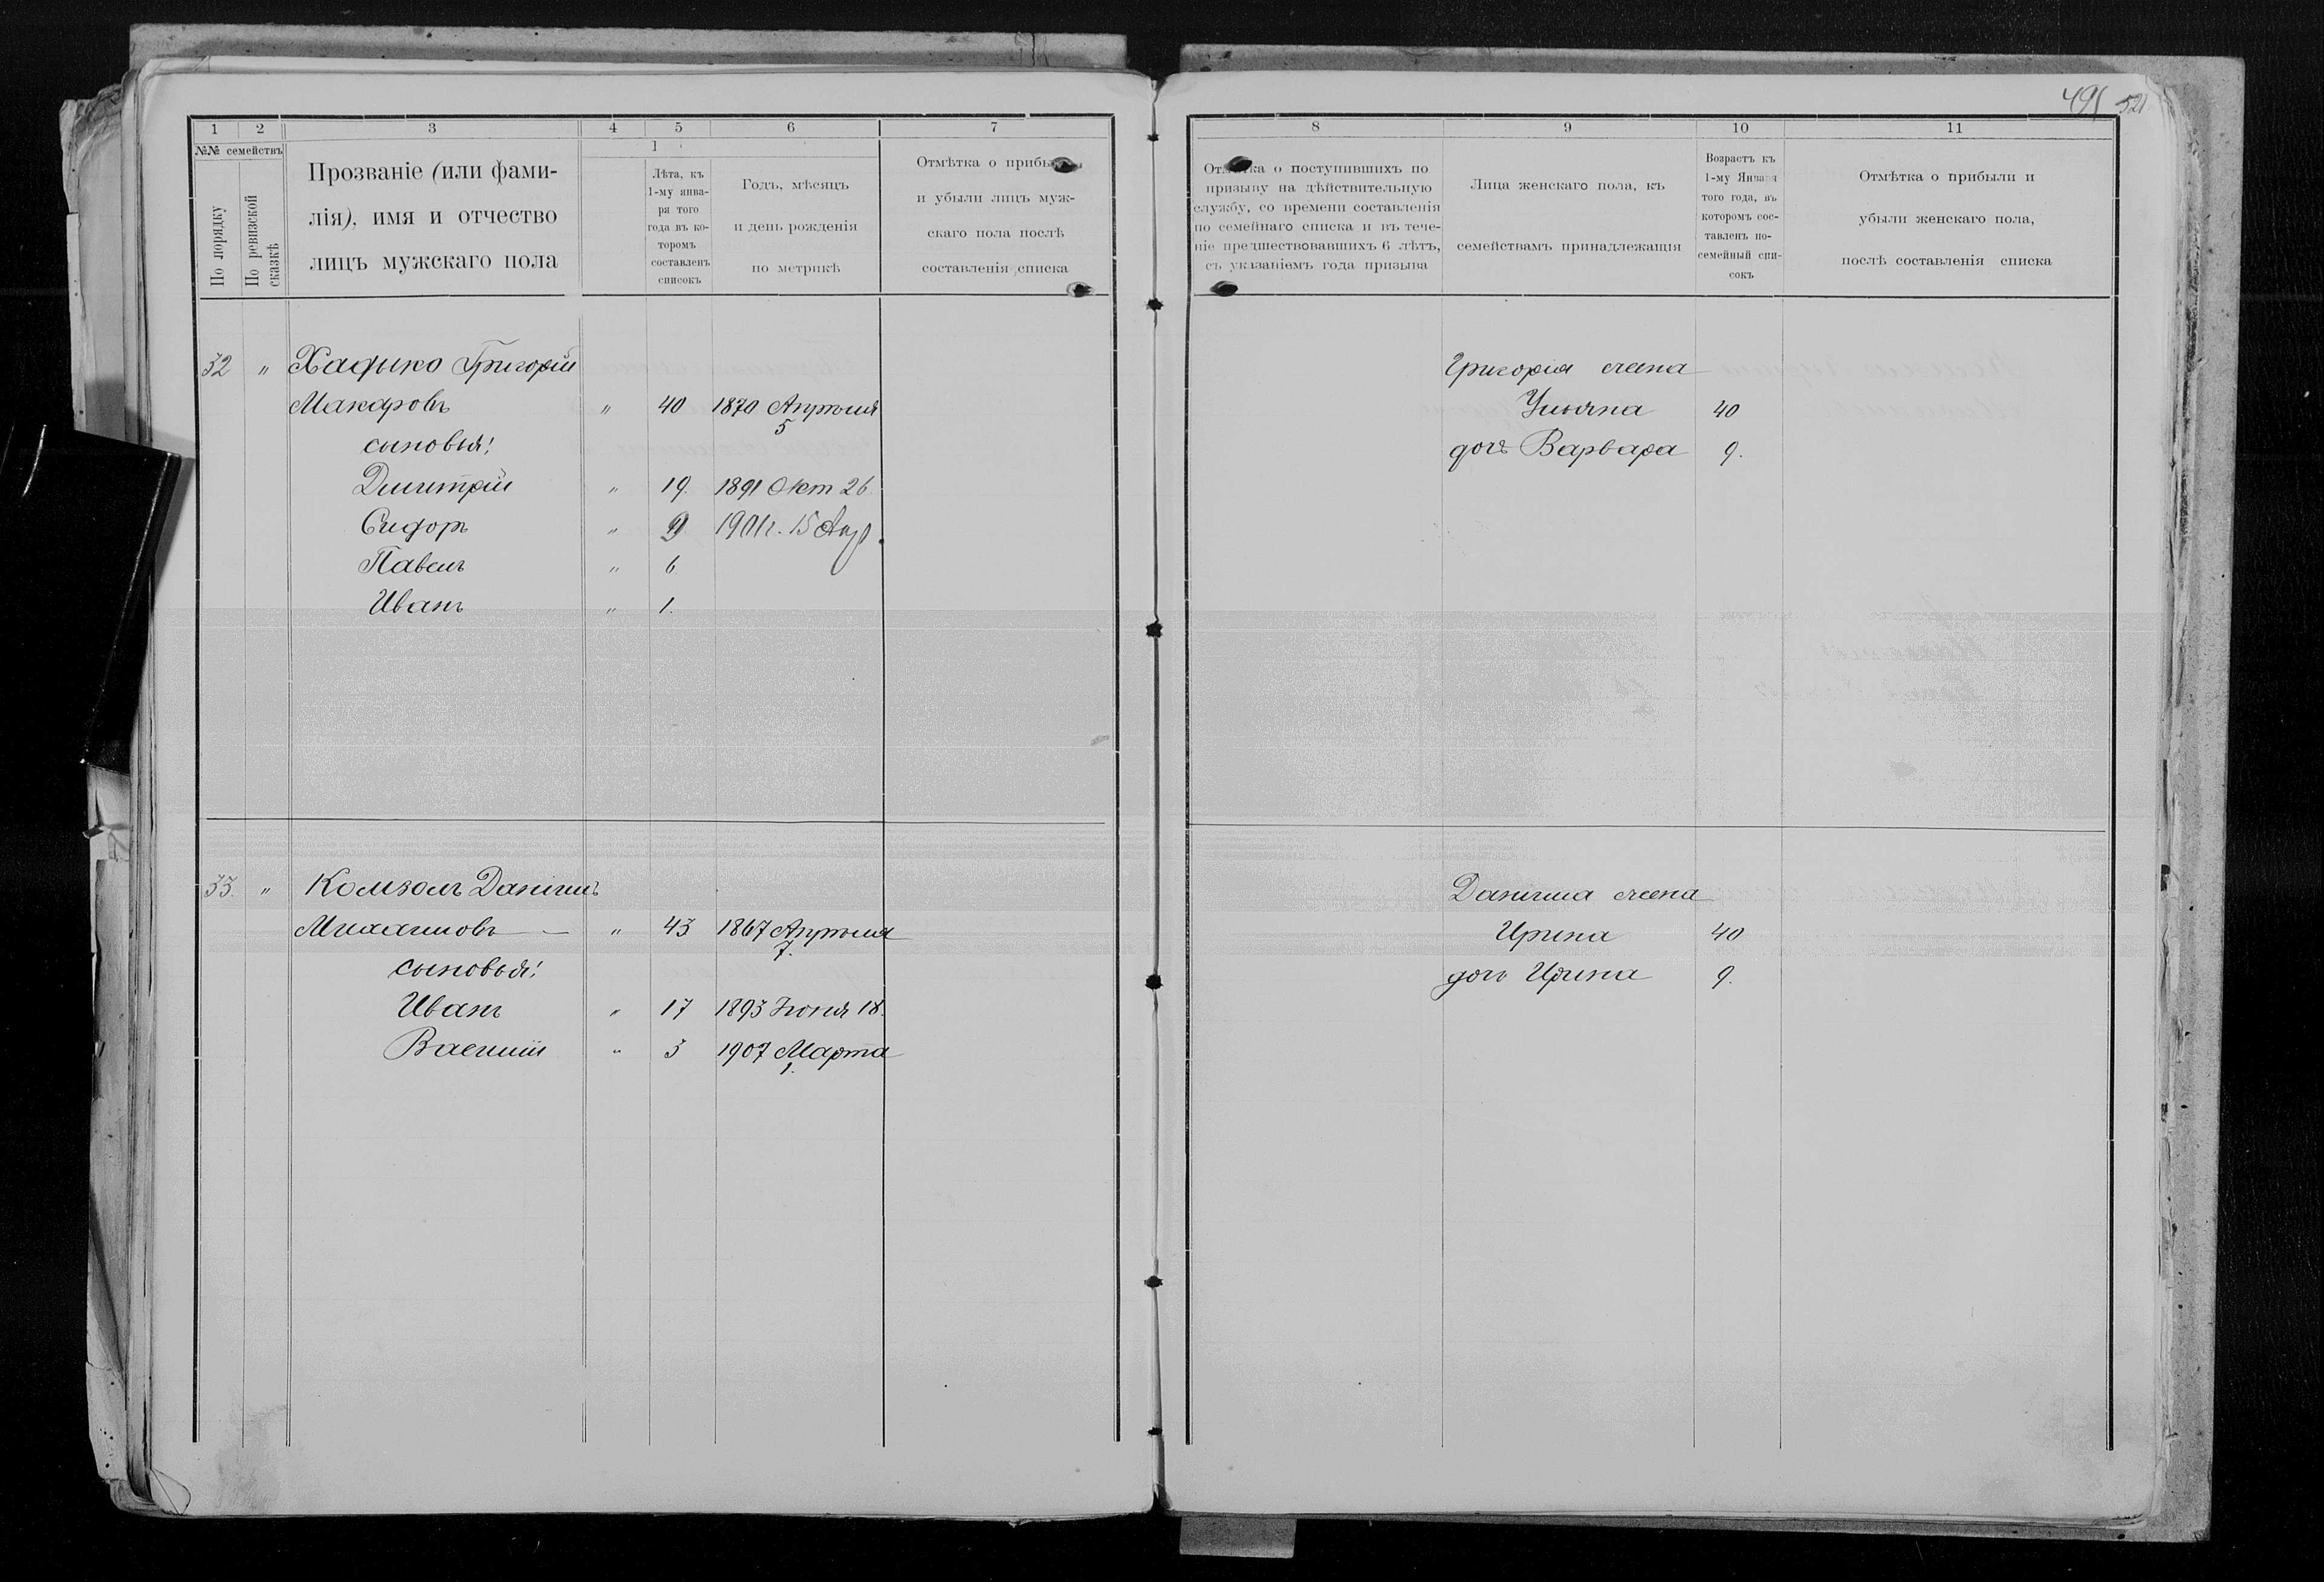 495 521
1 2 3 4 5 6 7
№№ семействъ
По порядку
По ревизской сказкѣ
Прозваніе (или фами-
лія), имя и отчество
лицъ мужскаго пола
1
Лѣта, къ
1-му янва-
ря того
года въ ко-
торомъ
составленъ
списокъ
Годъ, мѣсяцъ
и день рожденія
по метрикѣ
Отмѣтка о прибы
и убыли лицъ муж-
скаго пола послѣ
составленія списка
32 " Хадыко Григорій
Макаровъ " 40 1870 Апрѣля
5
сыновья:
Дмитрій " 19. 1891 Окт 26.
Сидоръ " 9 1901г. 15 Апр.
Павелъ " 6
Иванъ " 1.
33. " Комзолъ Даніилъ
Михаиловъ — " 43 1867 Апрѣля
7.
сыновья:
Иванъ " 17 1893 Іюня 18.
Василій " 3 1907 Марта
1.
8 9 10 11
Отмѣтка о поступившихъ по
призыву на дѣйствительную
службу, со времени составленія
по семейнаго списка и въ тече-
ніе предшествовавшихъ 6 лѣтъ,
съ указаніемъ года призыва
Лица женскаго пола, къ
семействамъ принадлежащія
Возрастъ къ
1-му Января
того года, въ
которомъ сос-
тавленъ по-
семейный спи-
сокъ
Отмѣтка о прибыли и
убыли женскаго пола,
послѣ составленія списка
Григорія жена
Ульяна 40
дочь Варвара 9.
Даніила жена
Ирина 40
дочь Ирина 9.